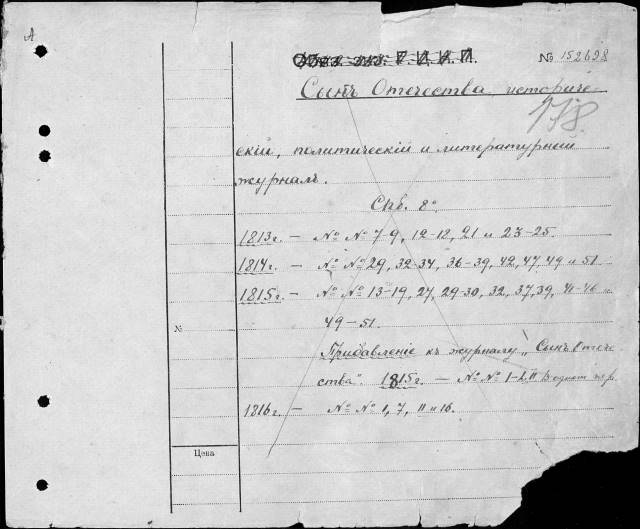 А
Г. И. К. П.
№ 152698
Сынъ Отечества, историче-
178.
скій, политическій и литературный
журналъ.
Спб. 8°.
1813г. — №№ 7-9, 12-18, 21 и 23-25.
1814г. — №№ 29, 32-34, 36-39, 42, 47, 49 и 51.
1815г. — №№ 13-19, 27, 29-30, 32, 37, 39, 41-46 и
№
49-51.
Прибавленіе къ журналу „Сынъ Отече-
ства". 1815г. — №№ 1-
1816г. — №№ 1, 7, 11 и 16.
Цѣна